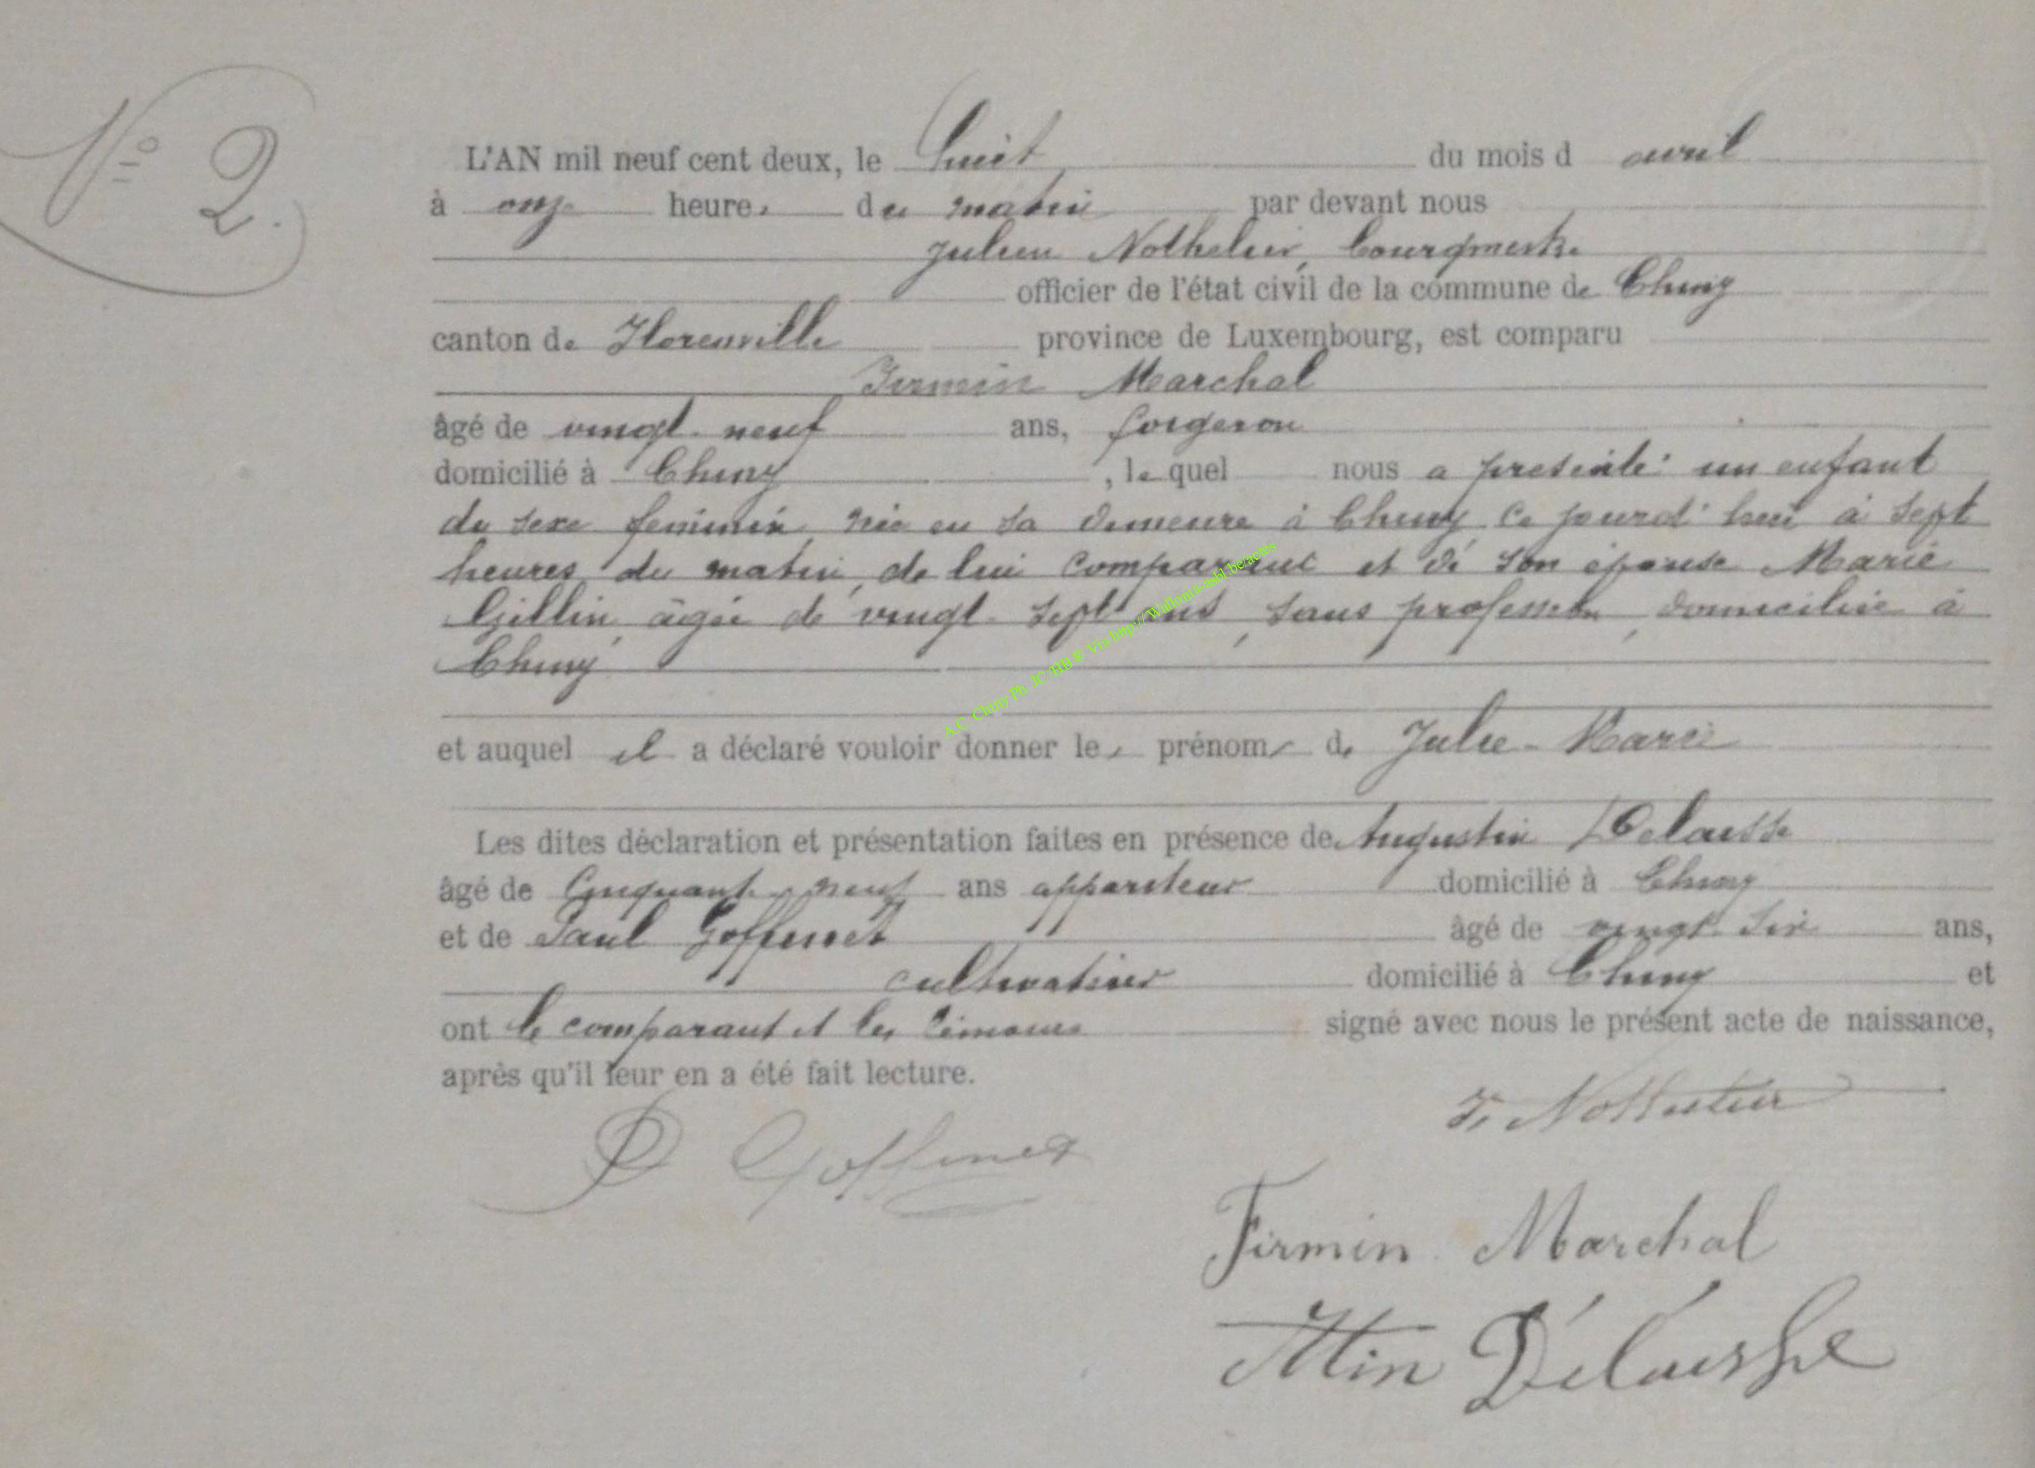 N° 2.
L'AN mil neuf cent deux, le huit du mois d avril
à onze heures du matin par devant nous
Julien Nothelier, bourgmestre
officier de l'état civil de la commune de Chiny
canton de Florenville province de Luxembourg, est comparu
Firmin Marchal
âgé de vingt-neuf ans, forgeron
domicilié à Chiny, lequel nous a présenté un enfant
du sexe feminin, née en sa demeure à Chiny ce jourd'hui à sept
heures du matin, de lui comparant et de son épouse Marie
Gillin, âgée de vingt-sept ans, sans profession, domiciliée à
Chiny
et auquel il a déclaré vouloir donner les prénoms de Julie-Marie
Les dites déclaration et présentation faites en présence de Augustin Delaisse
âgé de Cinquante-neuf ans appariteur domicilié à Chiny
et de Paul Goffinet âgé de vingt-six ans,
cultivateur domicilié à Chiny et
ont le comparant et les témoins signé avec nous le présent acte de naissance,
après qu'il leur en a été fait lecture.
J. Nothelier
P Goffinet
Firmin Marchal
Atin Delaisse